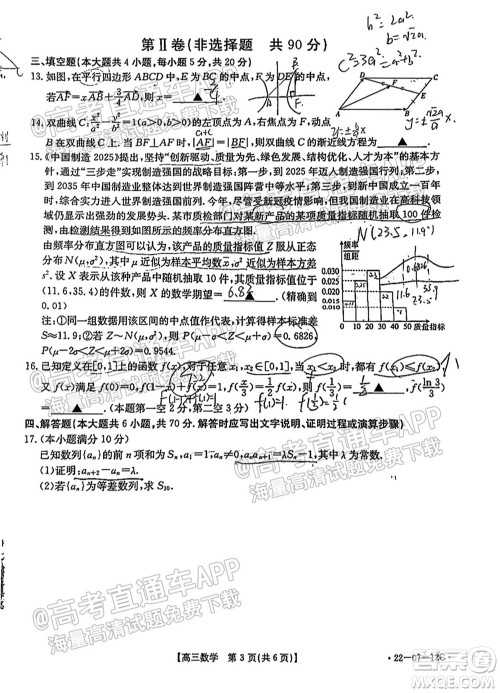 b²=2a²
b=√2a
第Ⅱ卷(非选择题 共90分)
三、填空题(本大题共4小题,每小题5分,共20分)
13. 如图,在平行四边形ABCD中,E为BC的中点,F为DE的中点,
若AF=xAB+3/4AD,则x=▲
14. 双曲线C:x²/a²-y²/b²=1(a>0,b>0)的左顶点为A,右焦点为F,动点
B在双曲线C上.当BF⊥AF时,|AF|=|BF|,则双曲线C的渐近线方程为▲
15.《中国制造2025》提出,坚持“创新驱动、质量为先、绿色发展、结构优化、人才为本”的基本方
针,通过“三步走”实现制造强国的战略目标:第一步,到2025年迈入制造强国行列;第二步,
到2035年中国制造业整体达到世界制造强国阵营中等水平;第三步,到新中国成立一百年
时,综合实力进入世界制造强国前列.尽管受新冠疫情影响,但我国制造业在高科技
领域仍显示出强劲的发展势头.某市质检部门对某新产品的某项质量指标随机抽取100件检
测,由检测结果得到如图所示的频率分布直方图.
N(23.5,11.9²)
由频率分布直方图可以认为,该产品的质量指标值Z服从正态分
布N(μ,σ²),其中μ近似为样本平均数x,σ²近似为样本方差
s².设X表示从该种产品中随机抽取10件,其质量指标值位于
(11.6,35.4)的件数,则X的数学期望=▲.(精确到
6.82
0.01)
注:①同一组数据用该区间的中点值作代表,计算得样本标准差
s≈11.9;②若Z~N(μ,σ²),则P(μ-σ<Z<μ+σ)=0.6826,
P(μ-2σ<Z<μ+2σ)=0.9544.
频率
组距
0.030
0.025
0.020
0.015
0.010
0 10 20 30 40 50 质量指标
11.6
23.5
0.6826
16. 已知定义在[0,1]上的函数f(x),对于任意x₁,x₂∈[0,1],当x₁<x₂时,都有f(x₁)≤f(x₂),
又f(x)满足f(0)=0,f(1-x)+f(x)=1,f(x/3)=1/2f(x),则f(1/3)=▲,f(ln3/3)
=▲.(本题第一空2分,第二空3分)
四、解答题(本大题共6小题,共70分.解答时应写出文字说明、证明过程或演算步骤)
17.(本小题满分10分)
已知数列{aₙ}的前n项和为Sₙ,a₁=1,aₙ≠0,aₙaₙ₊₁=λSₙ-1.
(1)证明:aₙ₊₂-aₙ=λ;
(2)若{aₙ}为等差数列,求S₁₀.
高考直通车APP
海量高清试题免费下载
【高三数学 第3页(共6页)】
·22-07-12C·